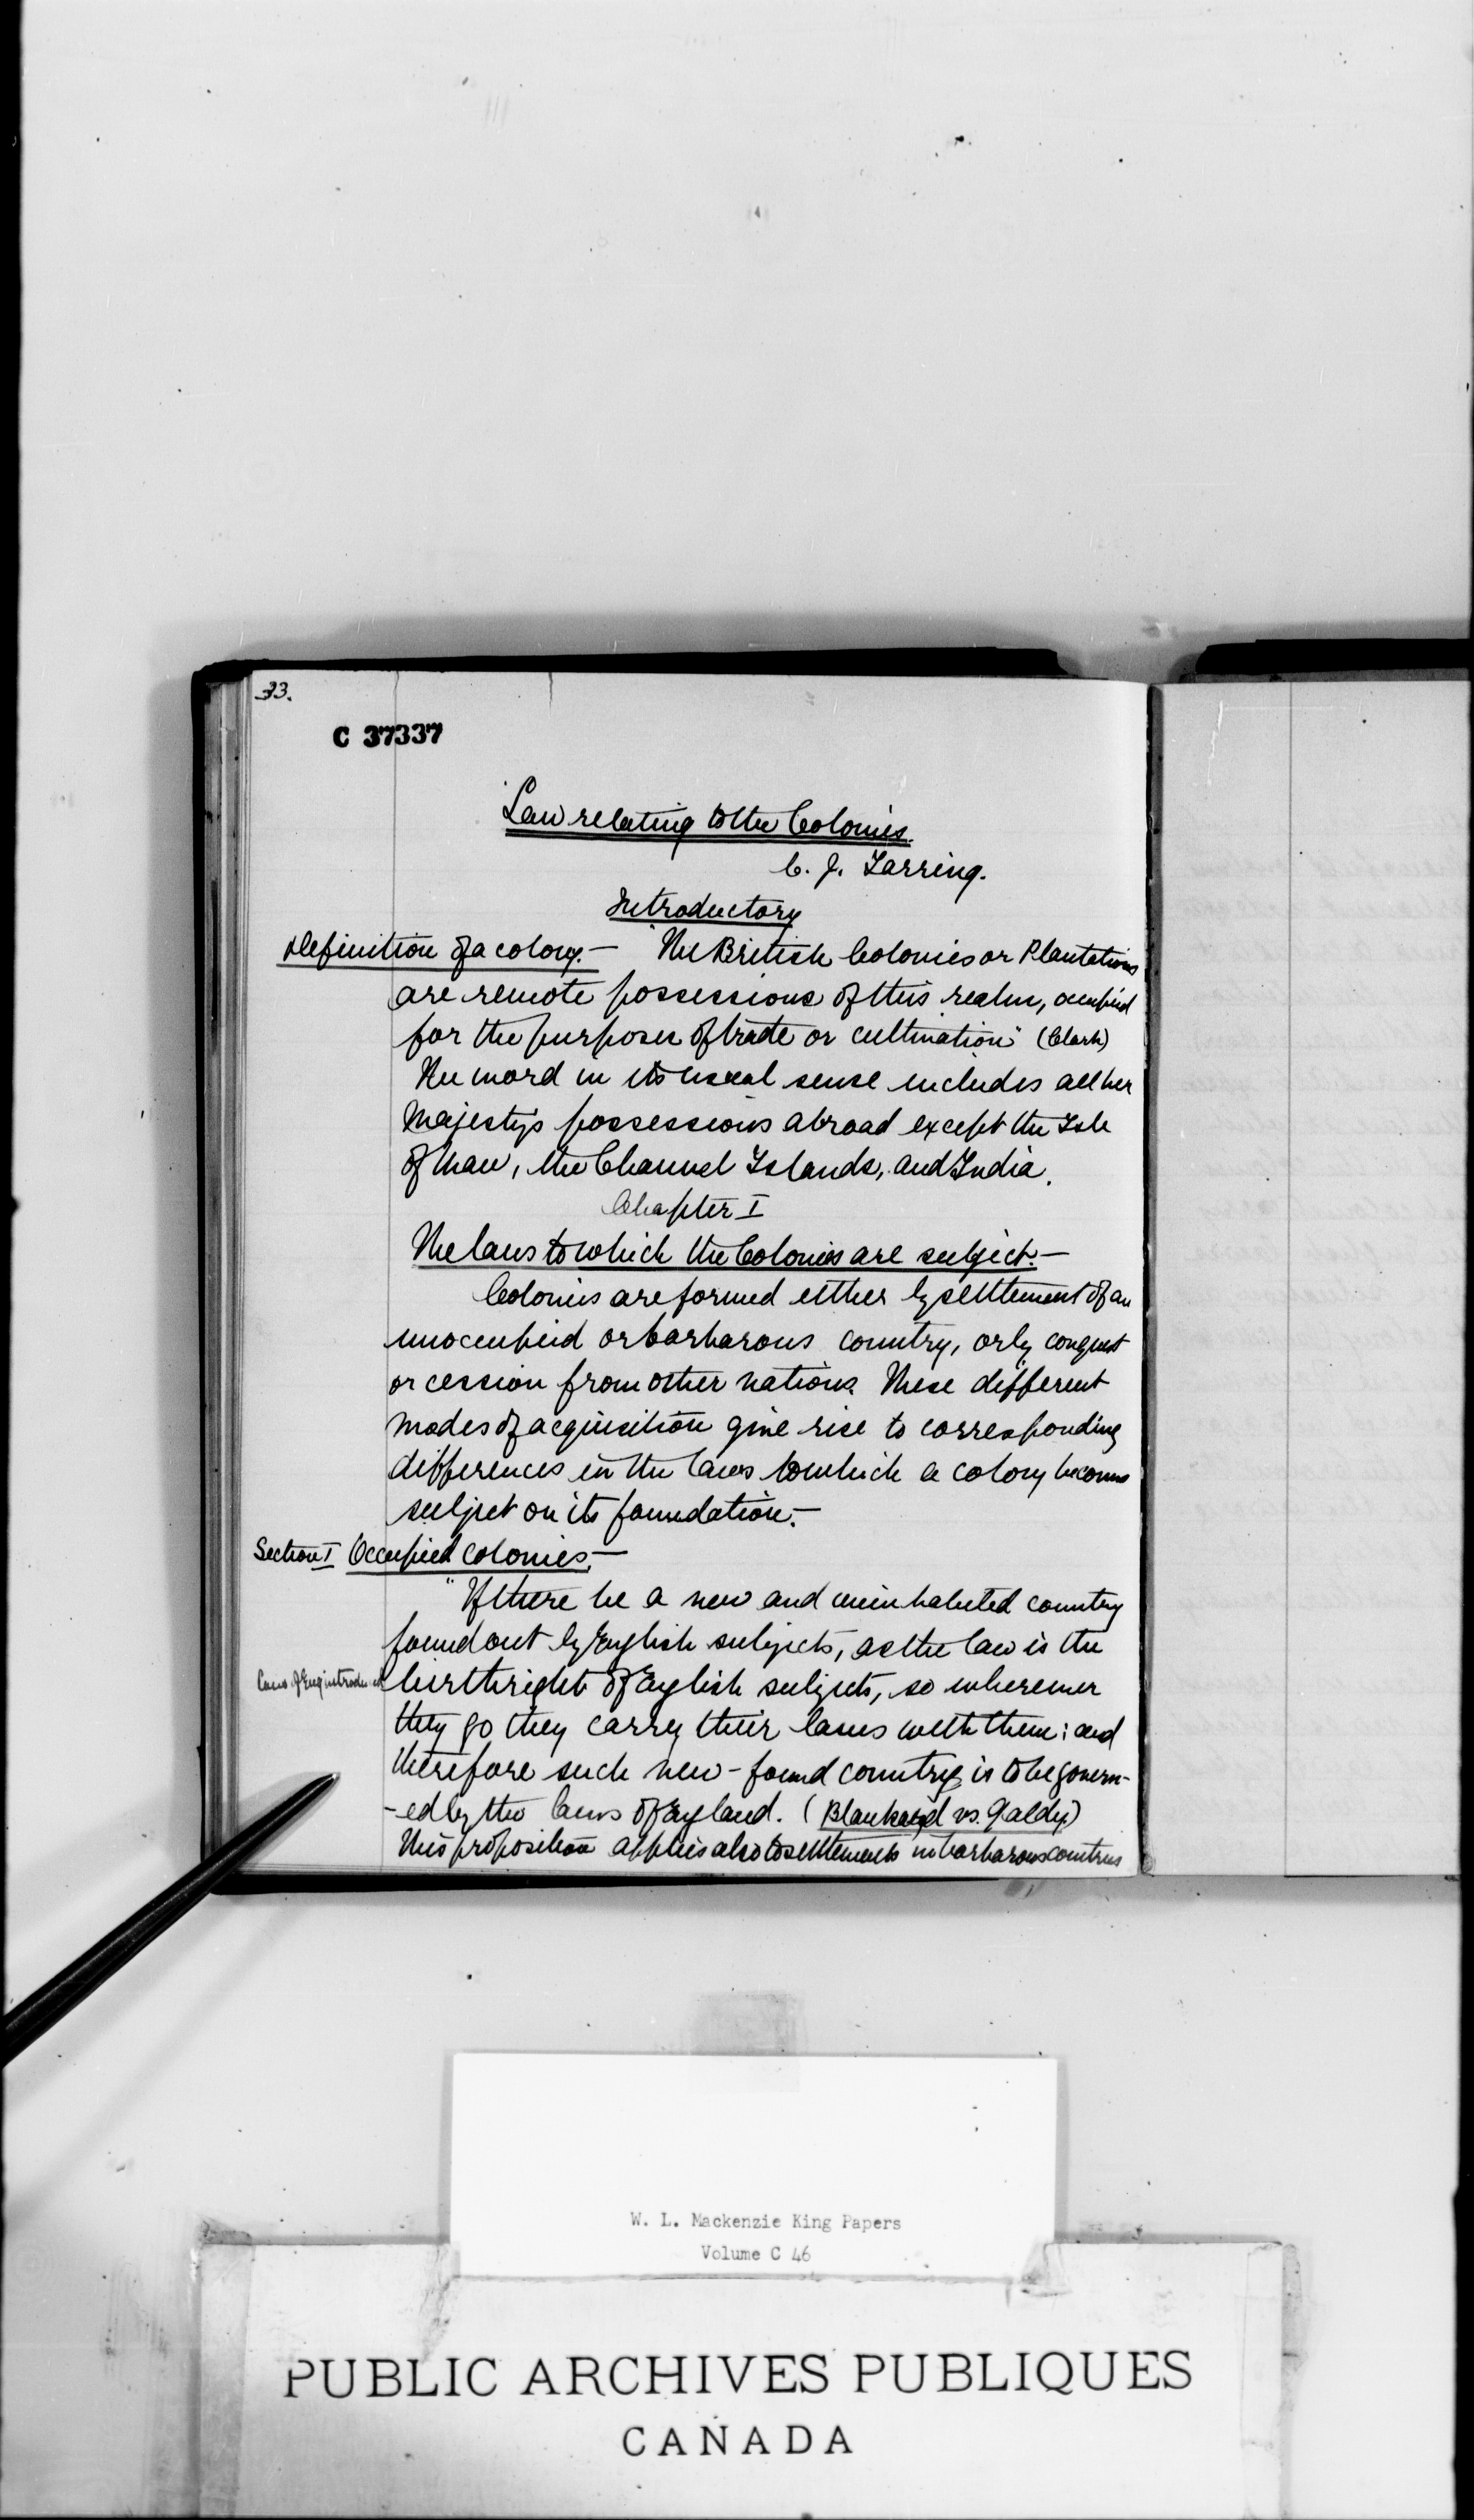 33.
C 37337
Law relating to the Colonies.
C. J. Tarring.
Introductory
Definition of a colony.— "The British Colonies or Plantations
are remote possessions of this realm, occupied
for the purposes of trade or cultivation" (Clark)
The word in its usual sense includes all her
Majesty's possessions abroad except the Isle
of Man, the Channel Islands, and India.
Chapter I
The laws to which the Colonies are subject.—
Colonies are formed either by settlement of an
unoccupied or barbarous country, or by conquest
or cession from other nations. These different
modes of acquisition give rise to corresponding
differences in the laws to which a colony becomes
subject on its foundation.—
Section I Occupied colonies.—
"If there be a new and uninhabited country
found out by English subjects, as the law is the
Laws of Eng introduced birthright of English subjects, so wherever
they go they carry their laws with them: and
therefore such new-found country is to be govern-
-ed by the laws of England. (Blankard vs. Galdy)
This proposition applies also to settlements in barbarous countries
W. L. Mackenzie King Papers
Volume C 46
PUBLIC ARCHIVES PUBLIQUES
CANADA